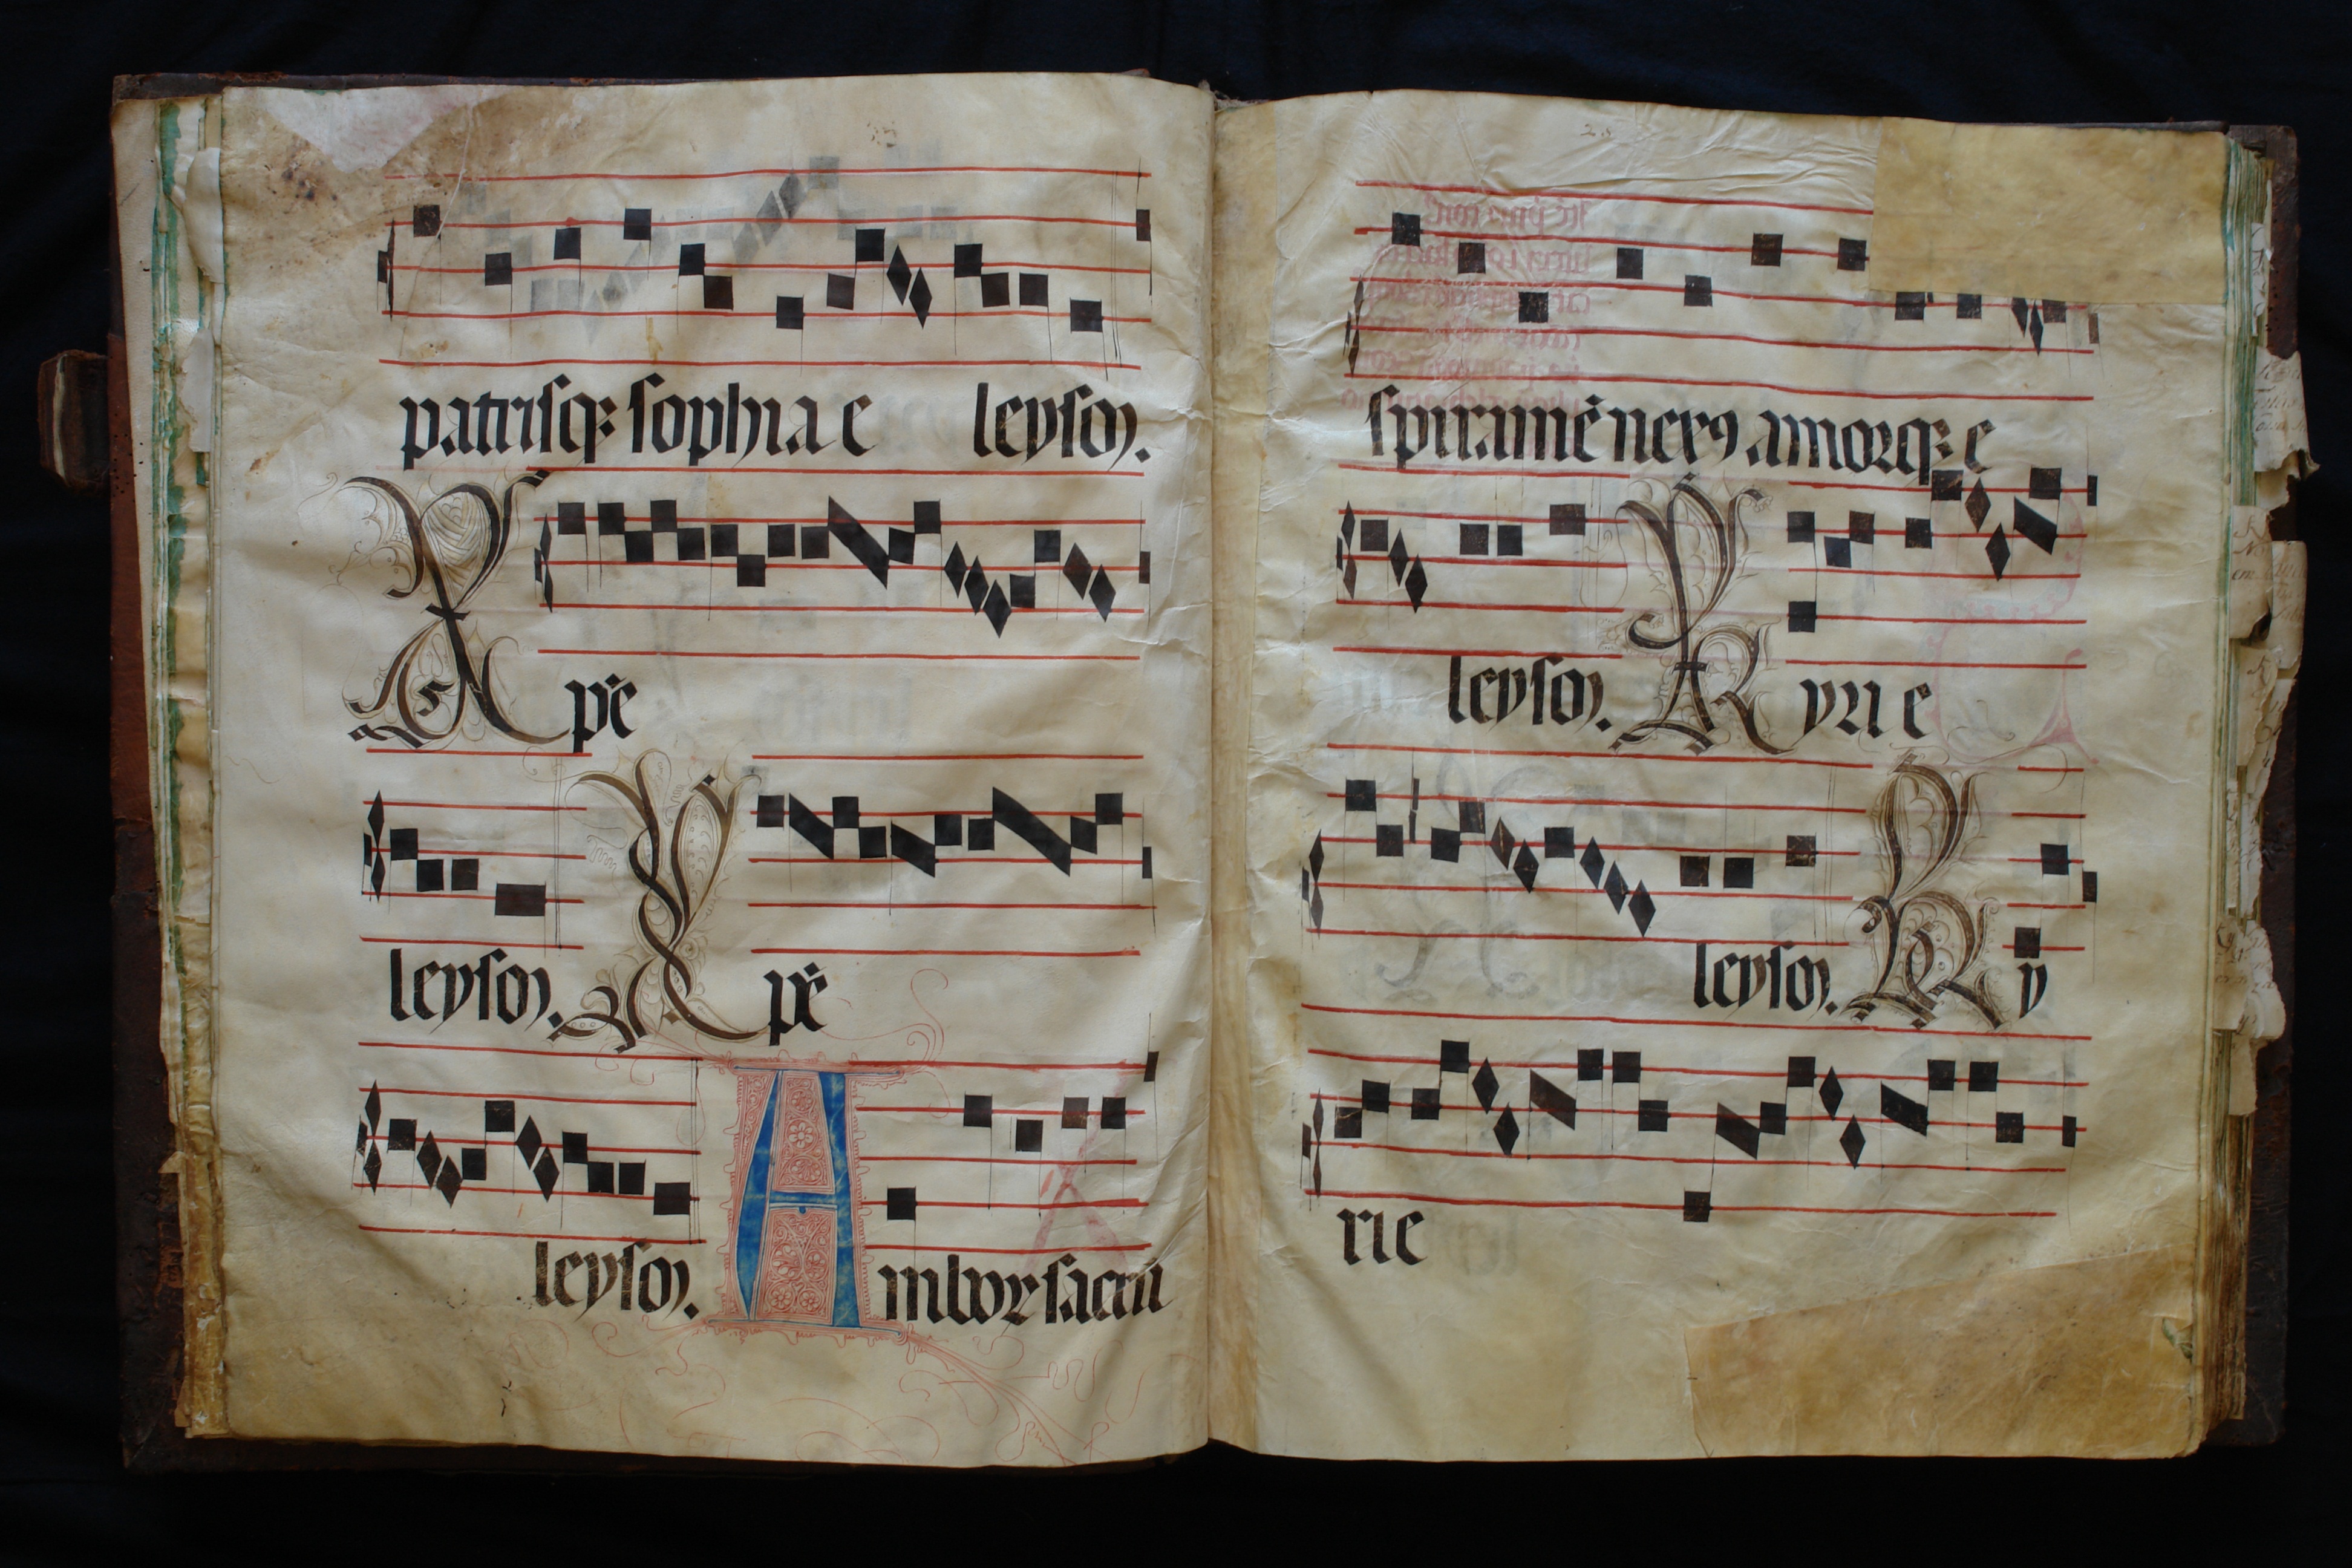 patrisq; sophia e leyson.
Xpe
leyson. Xpe
leyson. Amborū sacrū
spiramē nexꝯ amorq; e
leyson. Kyri e
leyson. Ky
rie